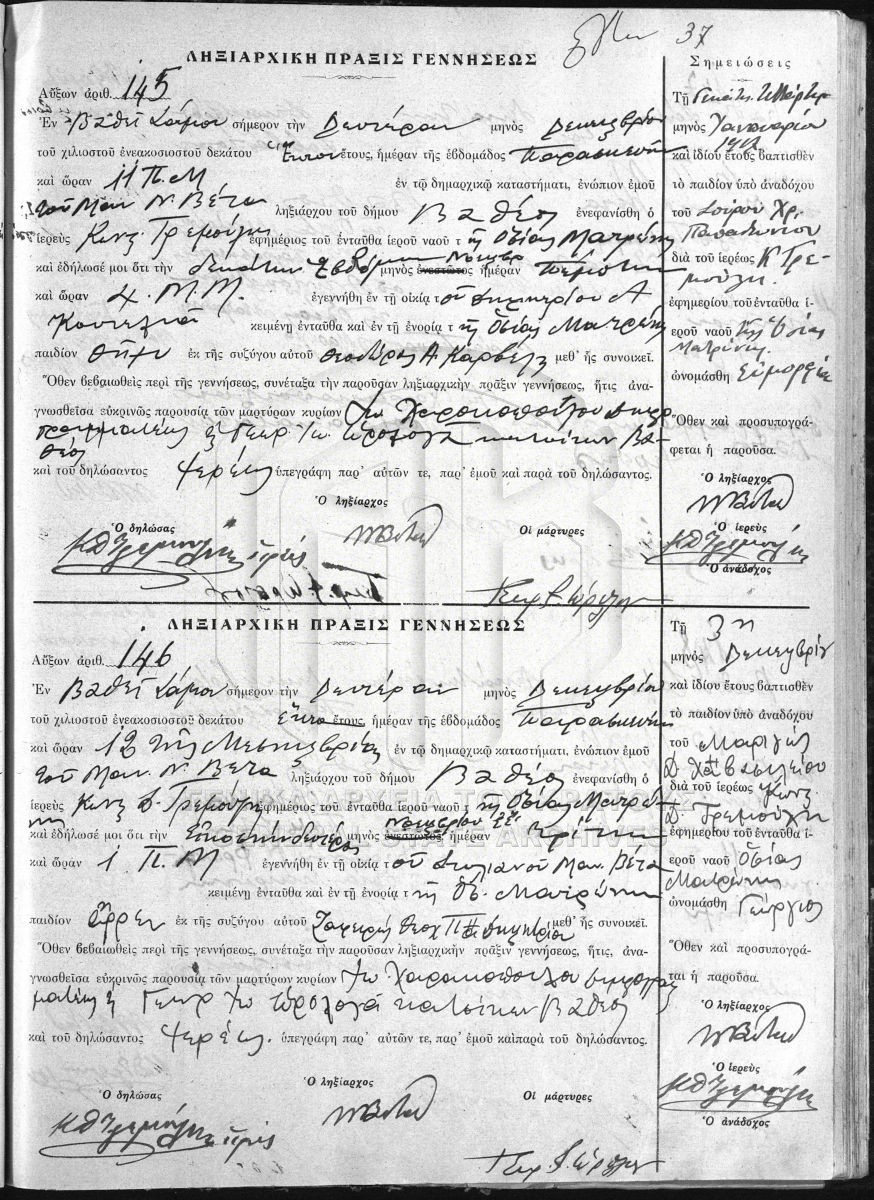 37
ΛΗΞΙΑΡΧΙΚΗ ΠΡΑΞΙΣ ΓΕΝΝΗΣΕΩΣ
Αὔξων ἀριθ. 145
Ἐν Βαθεῖ Σάμου σήμερον τὴν Δευτέραν μηνὸς Δεκεμβρίου
τοῦ χιλιοστοῦ ἐνεακοσιοστοῦ δεκάτου ἔτους, ἡμέραν τῆς ἑβδομάδος Παρασκευὴν
καὶ ὥραν 11 Π.Μ ἐν τῷ δημαρχικῷ καταστήματι, ἐνώπιον ἐμοῦ
τοῦ Μαν. Ν. Βέτα ληξιάρχου τοῦ δήμου Βαθέος ἐνεφανίσθη ὁ
ἱερεὺς Κωνζ. Γρεμούλης ἐφημέριος τοῦ ἐνταῦθα ἱεροῦ ναοῦ τῆς Ὁσίας Ματρώνης
καὶ ἐδήλωσέ μοι ὅτι τὴν δεκάτην ἑβδόμην μηνὸς ἐνεστῶτος Νοεμβρ ἡμέραν Πέμπτην
καὶ ὥραν 4. Μ.Μ. ἐγεννήθη ἐν τῇ οἰκίᾳ τοῦ Δημητρίου Α
κειμένῃ ἐνταῦθα καὶ ἐν τῇ ἐνορίᾳ τῆς Ὁσίας Ματρώνης
παιδίον θῆλυ ἐκ τῆς συζύγου αὐτοῦ Θεοδώρας Α Καρβέλη μεθ' ἧς συνοικεῖ.
Ὅθεν βεβαιωθεὶς περὶ τῆς γεννήσεως, συνέταξα τὴν παροῦσαν ληξιαρχικὴν πρᾶξιν γεννήσεως, ἥτις ἀνα-
γνωσθεῖσα εὐκρινῶς παρουσίᾳ τῶν μαρτύρων κυρίων Ἰω Χαρακοπούλου δημο
γραμματέως ἢ Γεωργ. Ἰω. Ὡρολογᾶ κατοίκων Βα-
θέος
καὶ τοῦ δηλώσαντος ἱερέως ὑπεγράφη παρ' αὐτῶν τε, παρ' ἐμοῦ καὶ παρὰ τοῦ δηλώσαντος.
Ὁ ληξίαρχος
Ὁ δηλώσας
Οἱ μάρτυρες
Σημειώσεις
Τῇ
μηνὸς Ἰανουαρίου
1917
καὶ ἰδίου ἔτους βαπτισθὲν
τὸ παιδίον ὑπὸ ἀναδόχου
τοῦ Σπύρου Χρ.
Παπαδωνίου
διὰ τοῦ ἱερέως Κ Γρε-
μούλη.
ἐφημερίου τοῦ ἐνταῦθα ἱ-
εροῦ ναοῦ τῆς Ὁσίας
Ματρώνης.
ὠνομάσθη Εὐμορφία
Ὅθεν καὶ προσυπογρά-
φεται ἡ παροῦσα.
Ὁ ληξίαρχος
Ὁ ἱερεὺς
Ὁ ἀνάδοχος
ΛΗΞΙΑΡΧΙΚΗ ΠΡΑΞΙΣ ΓΕΝΝΗΣΕΩΣ
Αὔξων ἀριθ. 146
Ἐν Βαθεῖ Σάμου σήμερον τὴν Δευτέραν μηνὸς Δεκεμβρίου
τοῦ χιλιοστοῦ ἐνεακοσιοστοῦ δεκάτου Ἕκτου ἔτους, ἡμέραν τῆς ἑβδομάδος Παρασκευὴν
καὶ ὥραν 12 τῆς Μεσημβρίας ἐν τῷ δημαρχικῷ καταστήματι, ἐνώπιον ἐμοῦ
τοῦ Μαν. Ν. Βέτα ληξιάρχου τοῦ δήμου Βαθέος ἐνεφανίσθη ὁ
ἱερεὺς Κωνζ Δ. Γρεμούλης ἐφημέριος τοῦ ἐνταῦθα ἱεροῦ ναοῦ τῆς Ὁσίας Ματρώ-
νης καὶ ἐδήλωσέ μοι ὅτι τὴν Εἰκοστὴν δευτέραν μηνὸς ἐνεστῶτος Νοεμβρίου ἡμέραν Τρίτην
καὶ ὥραν 1 Π. Μ ἐγεννήθη ἐν τῇ οἰκίᾳ τοῦ Στυλιανοῦ Μαν. Βέτα
κειμένῃ ἐνταῦθα καὶ ἐν τῇ ἐνορίᾳ τῆς Ὁσ. Ματρώνης
παιδίον ἄρρεν ἐκ τῆς συζύγου αὐτοῦ Ζαφείρης Θεοχ Π Δημητρίου μεθ' ἧς συνοικεῖ.
Ὅθεν βεβαιωθεὶς περὶ τῆς γεννήσεως, συνέταξα τὴν παροῦσαν ληξιαρχικὴν πρᾶξιν γεννήσεως, ἥτις, ἀνα-
γνωσθεῖσα εὐκρινῶς παρουσίᾳ τῶν μαρτύρων κυρίων Ἰω Χαρακοπούλου δημογραμ
ματέως ἢ Γεωργ Ἰω Ὡρολογᾶ κατοίκων Βαθέος
καὶ τοῦ δηλώσαντος ἱερέως. ὑπεγράφη παρ' αὐτῶν τε, παρ' ἐμοῦ καὶ παρὰ τοῦ δηλώσαντος.
Ὁ ληξίαρχος
Ὁ δηλώσας
Οἱ μάρτυρες
Τῇ 3η
μηνὸς Δεκεμβρίου
καὶ ἰδίου ἔτους βαπτισθὲν
τὸ παιδίον ὑπὸ ἀναδόχου
τοῦ Μαριγῶς
Δ. Χ''Βασιλείου
διὰ τοῦ ἱερέως Κωνζ.
Δ. Γρεμούλη
ἐφημερίου τοῦ ἐνταῦθα ἱ-
εροῦ ναοῦ Ὁσίας
Ματρώνης
ὠνομάσθη Γεώργιος
Ὅθεν καὶ προσυπογρά-
φεται ἡ παροῦσα.
Ὁ ληξίαρχος
Ὁ ἱερεὺς
Ὁ ἀνάδοχος